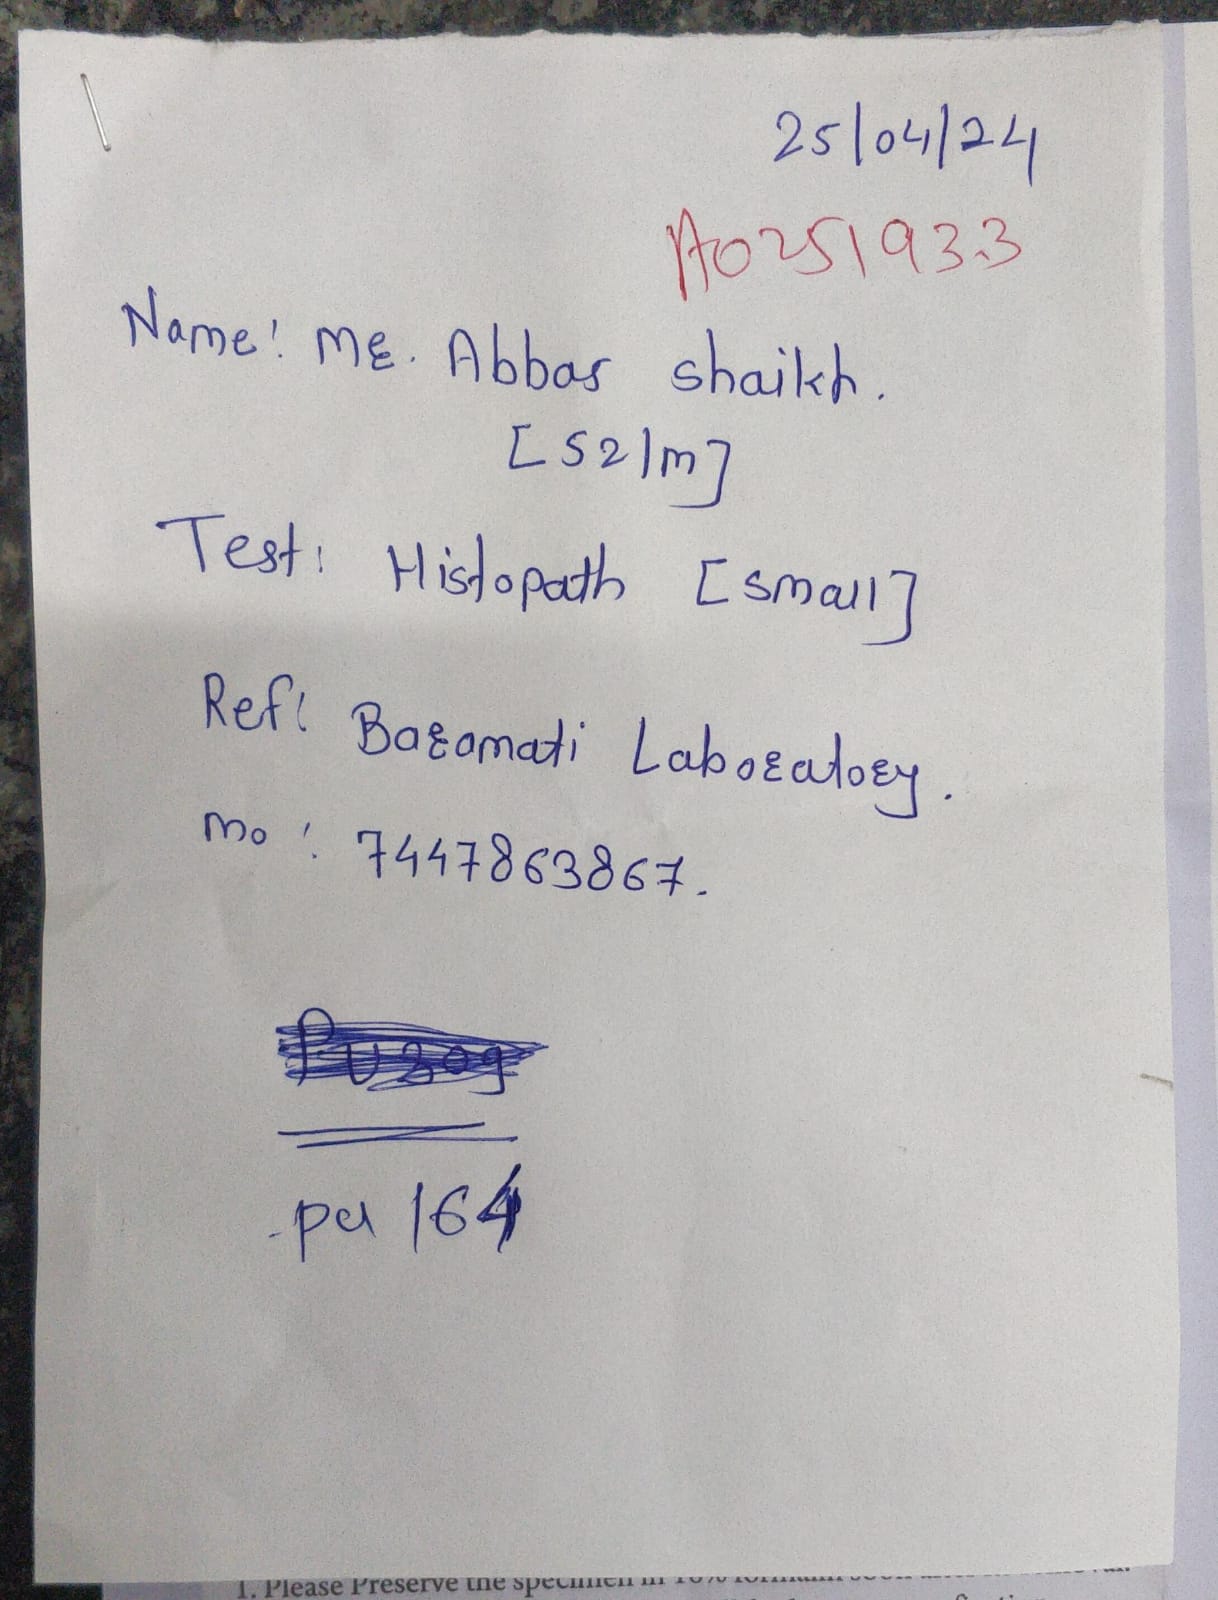 25/04/24
A0251933
Name: Mr. Abbas shaikh.
[52/m]
Test: Histopath [small]
Ref: Baramati Laboratory.
mo: 7447863867.
pu 164
1. Please Preserve the specimen in 10% formalin